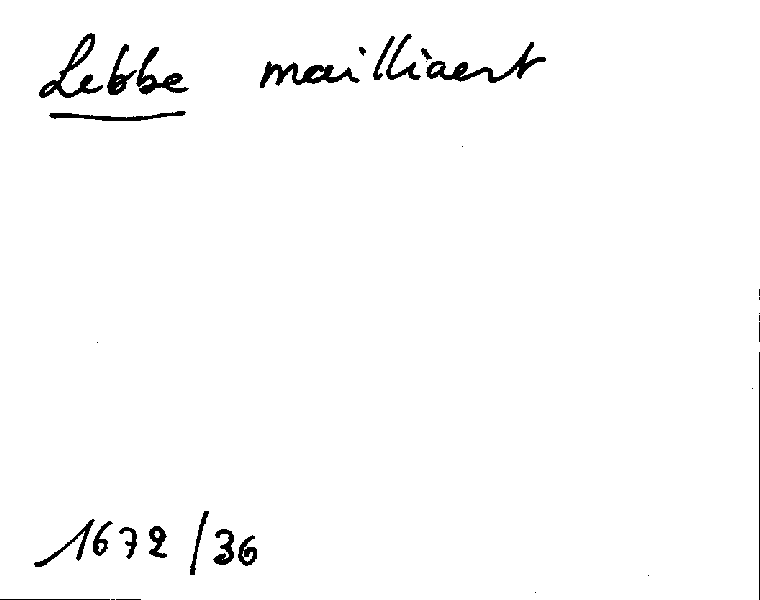 Lebbe mailliaert
1672/36